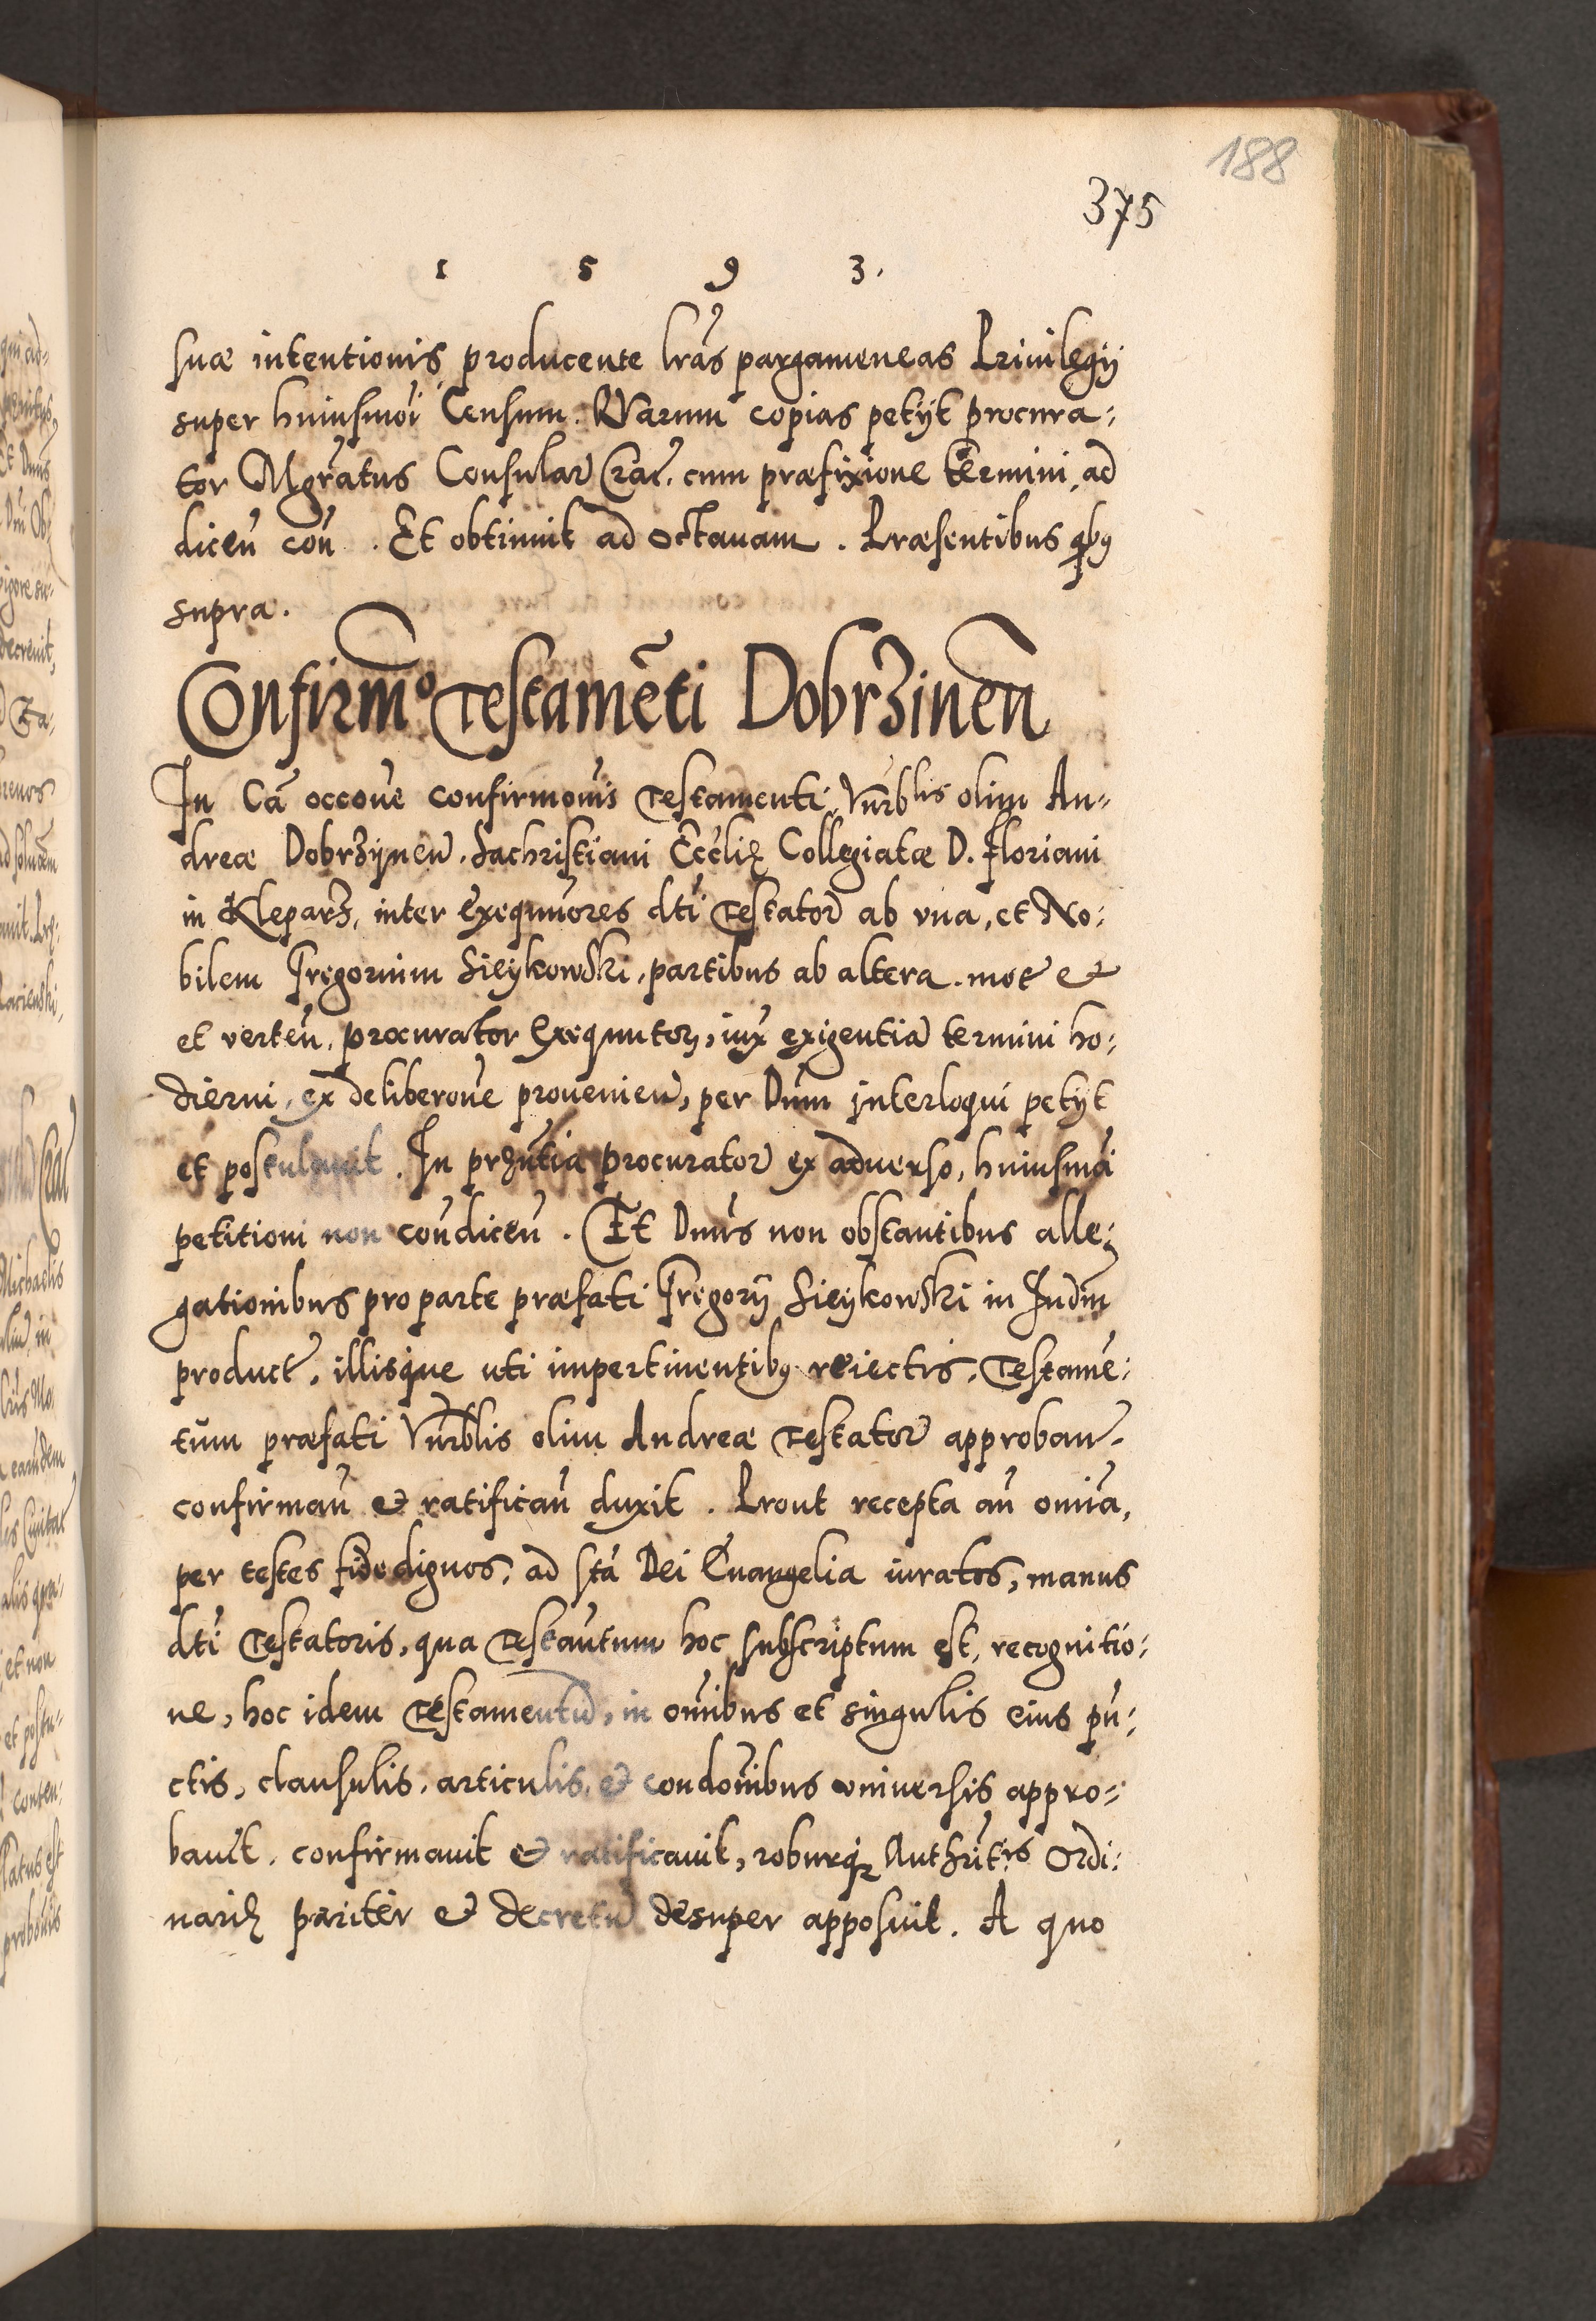 188
375
1 5 9 3.
suæ intentionis producente lrãs pargameneas Priuilegij
super huiusmoi Censum. Quarum copias petijt procura:
tor Mgratus Consular Crac. cum præfixione termini, ad
diceñ coñ. Et obtinuit ad octauam. Præsentibus qbg
supra.
Confirmo Testamẽti Dobrzineñ
In Cã occone confirmonis Testamenti Vnrblis olim An=
dreæ Dobrzÿneñ. Sachristiani Eccliæ Collegiatæ D. Floriani
in Kleparz, inter Exequutores dti Testator ab vna, et No:
bilem Gregorium Sieÿkowski, partibus ab altera. mot &
et verteñ, procurator Exequutor, iux exigentia termini ho:
dierni, ex deliberone prouenieñ, per Dnum interloqui petÿt
et postulauit. In prñtia Procurator ex aduerso, huiusmoi
petitioni non condiceñ. Et Dnus non obstantibus alle:
gationibus pro parte præfati Gregorij Sieÿkowski in Iudm
product, illisque uti impertinentibg reiectis, Testamẽ:
tum præfati Vnrblis olim Andreæ Testator approban.
confirmañ & ratificañ duxit. Prout recepta añ omia,
per testes fidedignos, ad sta Dei Euangelia iuratos, manus
dti Testatoris, qua Testãntum hoc subscriptum est, recognitio:
ne, hoc idem Testamentũ, in omibus et singulis eius pũ:
ctis, clausulis, articulis, & condonibus vniuersis appro=
bauit. confirmauit & ratificauit, roburq Authritis Ordi:
nariæ pariter & decretũ desuper apposuit. A quo